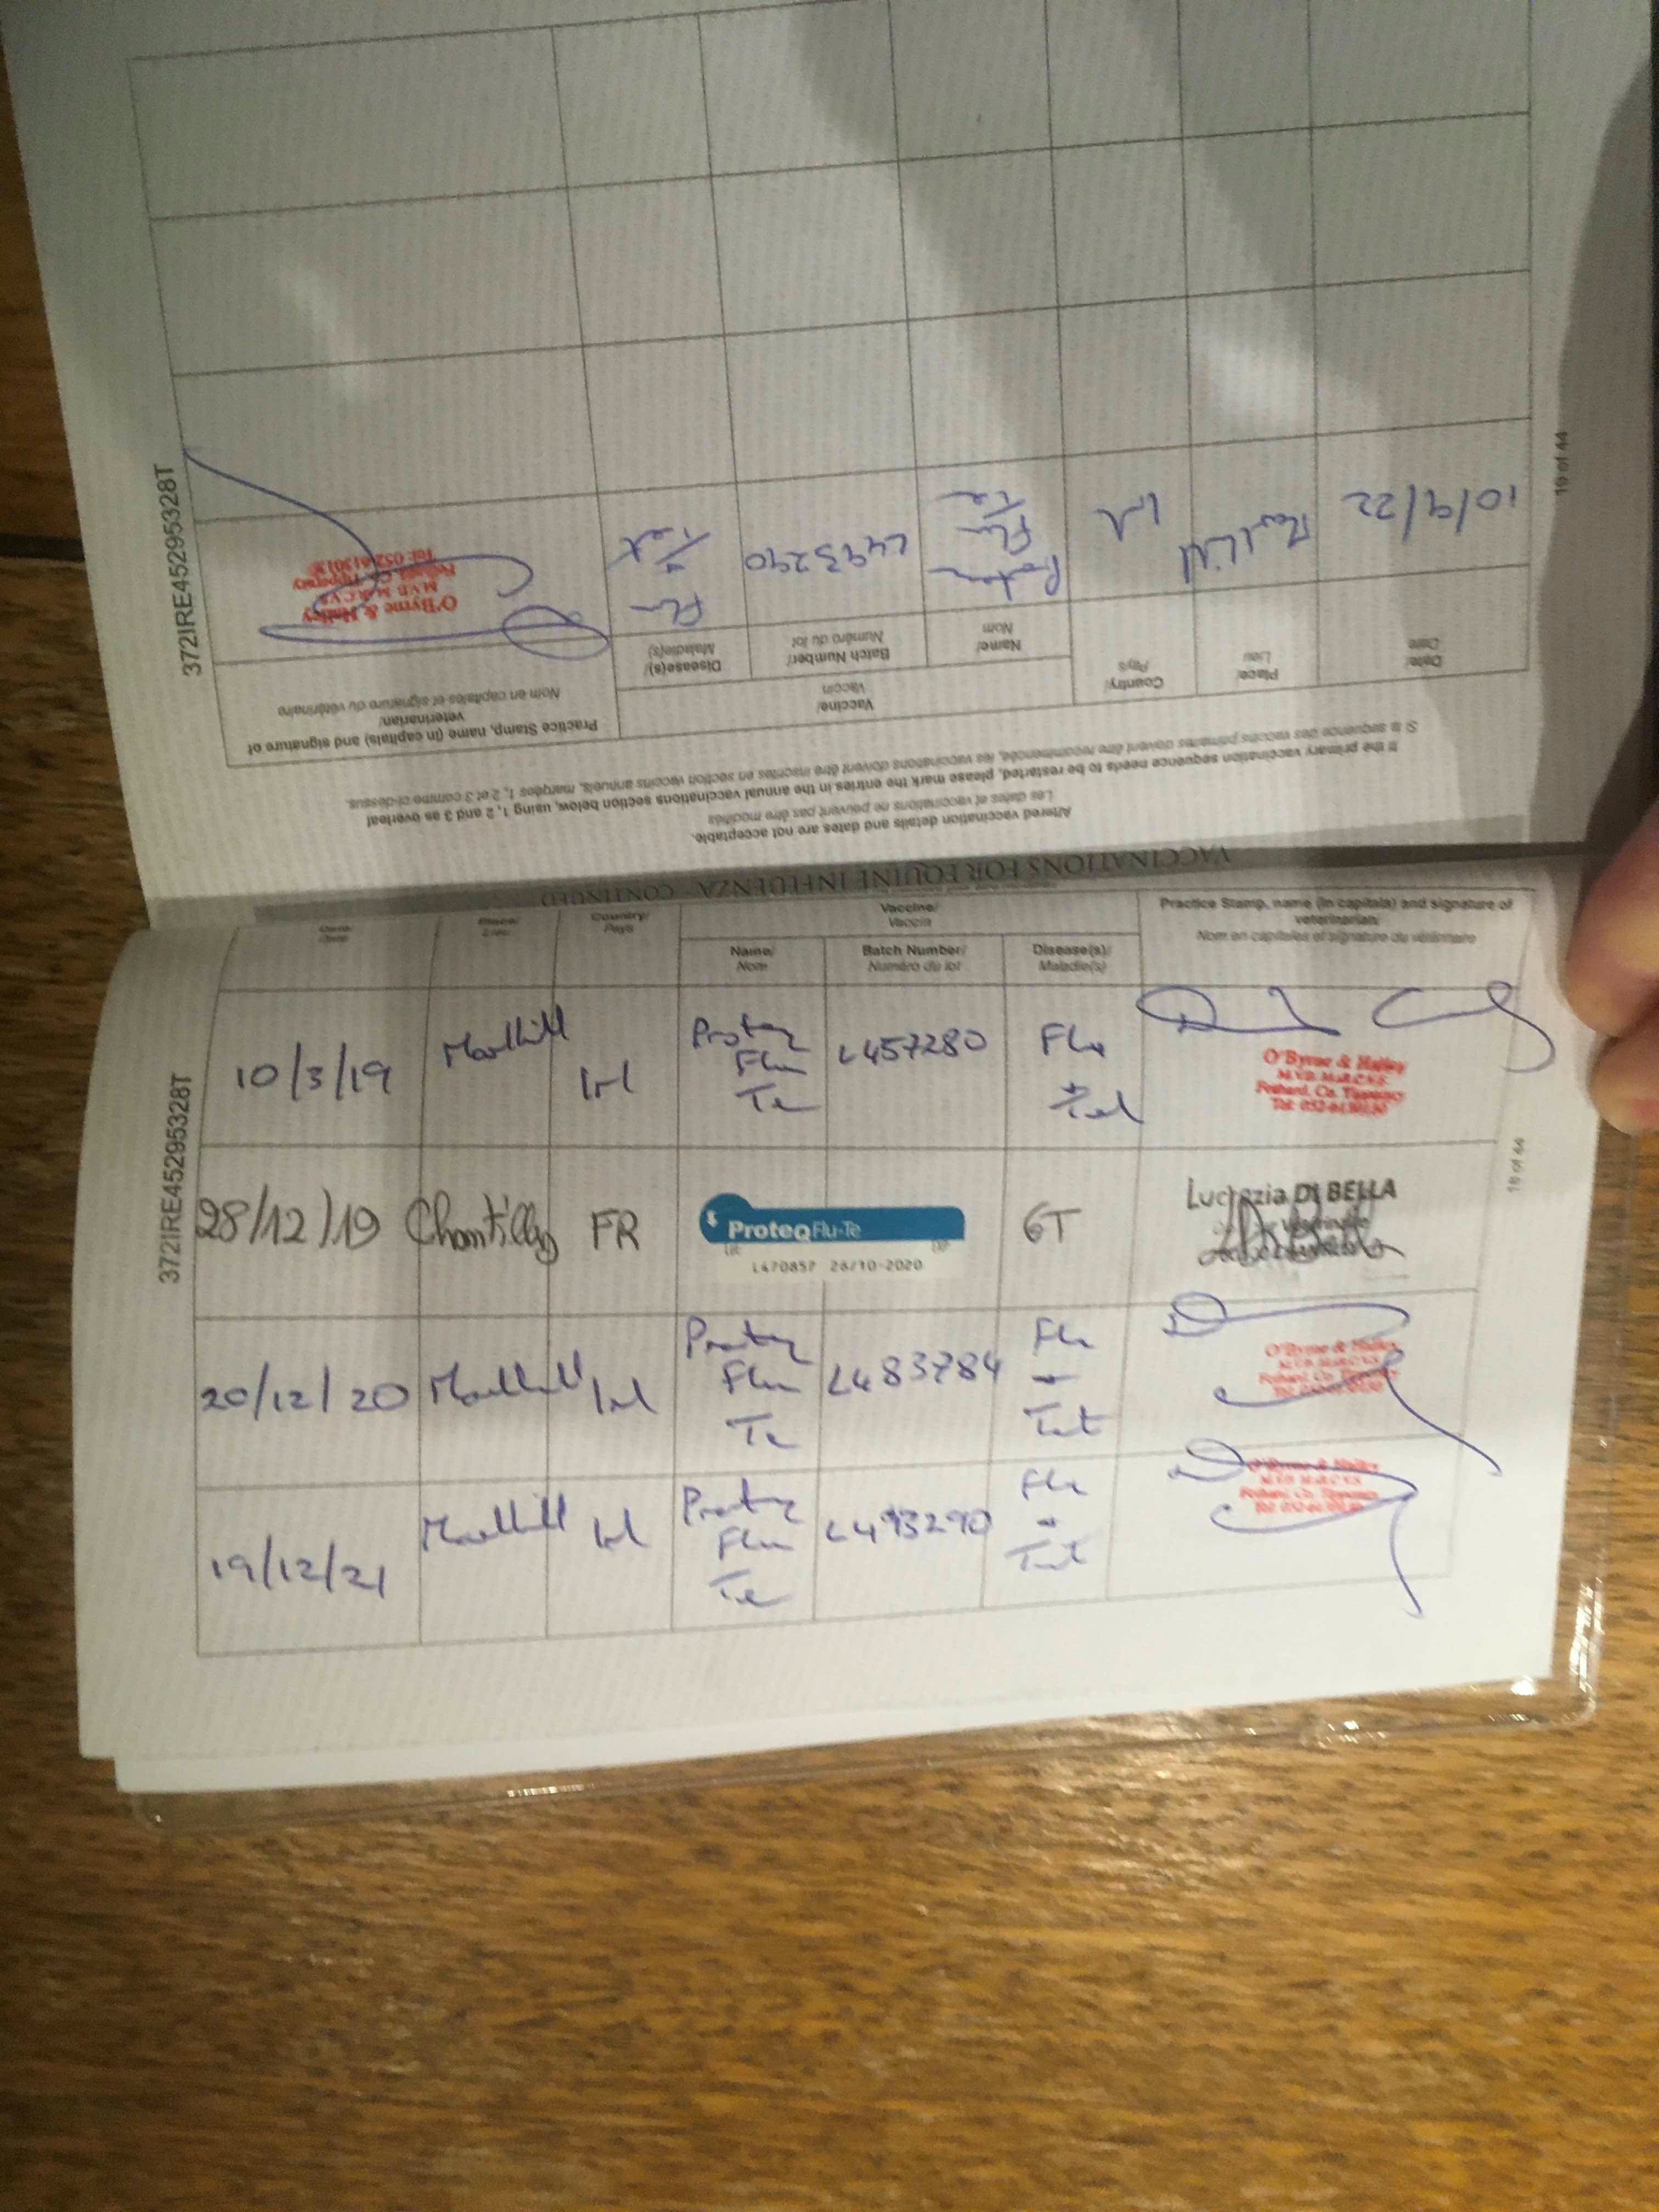 372IRE452953281T
Date/
Date
Place/
Lieu
Country/
Pays
Vaccine/
Vaccin
Name/
Nom
Batch Number/
Numéro du lot
Disease(s)/
Maladie(s)
Practice Stamp, name (in capitals) and signature of
veterinarian/
Nom en capitales et signature du vétérinaire
10/3/19
Irl
Proteq
Flu
Te
L457280
Flu
+
Tet
O'Byrne & Halley
M.V.B. M.R.C.V.S.
Fethard, Co. Tipperary
28/12/19
Chantilly
FR
ProteqFlu-Te
L470857 26/10-2020
GT
Lucrezia DI BELLA
20/12/20
Irl
Proteq
Flu
Te
L483784
Flu
+
Tet
O'Byrne & Halley
M.V.B. M.R.C.V.S.
Fethard, Co. Tipperary
19/12/21
Irl
Proteq
Flu
Te
L493290
Flu
+
Tet
O'Byrne & Halley
M.V.B. M.R.C.V.S.
Fethard, Co. Tipperary
18 of 44
VACCINATIONS FOR EQUINE INFLUENZA - CONTINUED
Altered vaccination details and dates are not acceptable.
Les dates et vaccinations ne peuvent pas être modifiés
If the primary vaccination sequence needs to be restarted, please mark the entries in the annual vaccinations section below, using 1, 2 and 3 as overleaf
Si la sequence des vaccins primaires doivent être recommencée, les vaccinations doivent être inscrites en section vaccins annuels, marqées 1, 2 et 3 comme ci-dessus.
Date/
Date
Place/
Lieu
Country/
Pays
Vaccine/
Vaccin
Name/
Nom
Batch Number/
Numéro du lot
Disease(s)/
Maladie(s)
Practice Stamp, name (in capitals) and signature of
veterinarian/
Nom en capitales et signature du vétérinaire
10/9/22
Irl
Flu
Te
L493290
Flu
+
Tet
O'Byrne & Halley
M.V.B. M.R.C.V.S.
Fethard, Co. Tipperary
19 of 44
372IRE45295328T